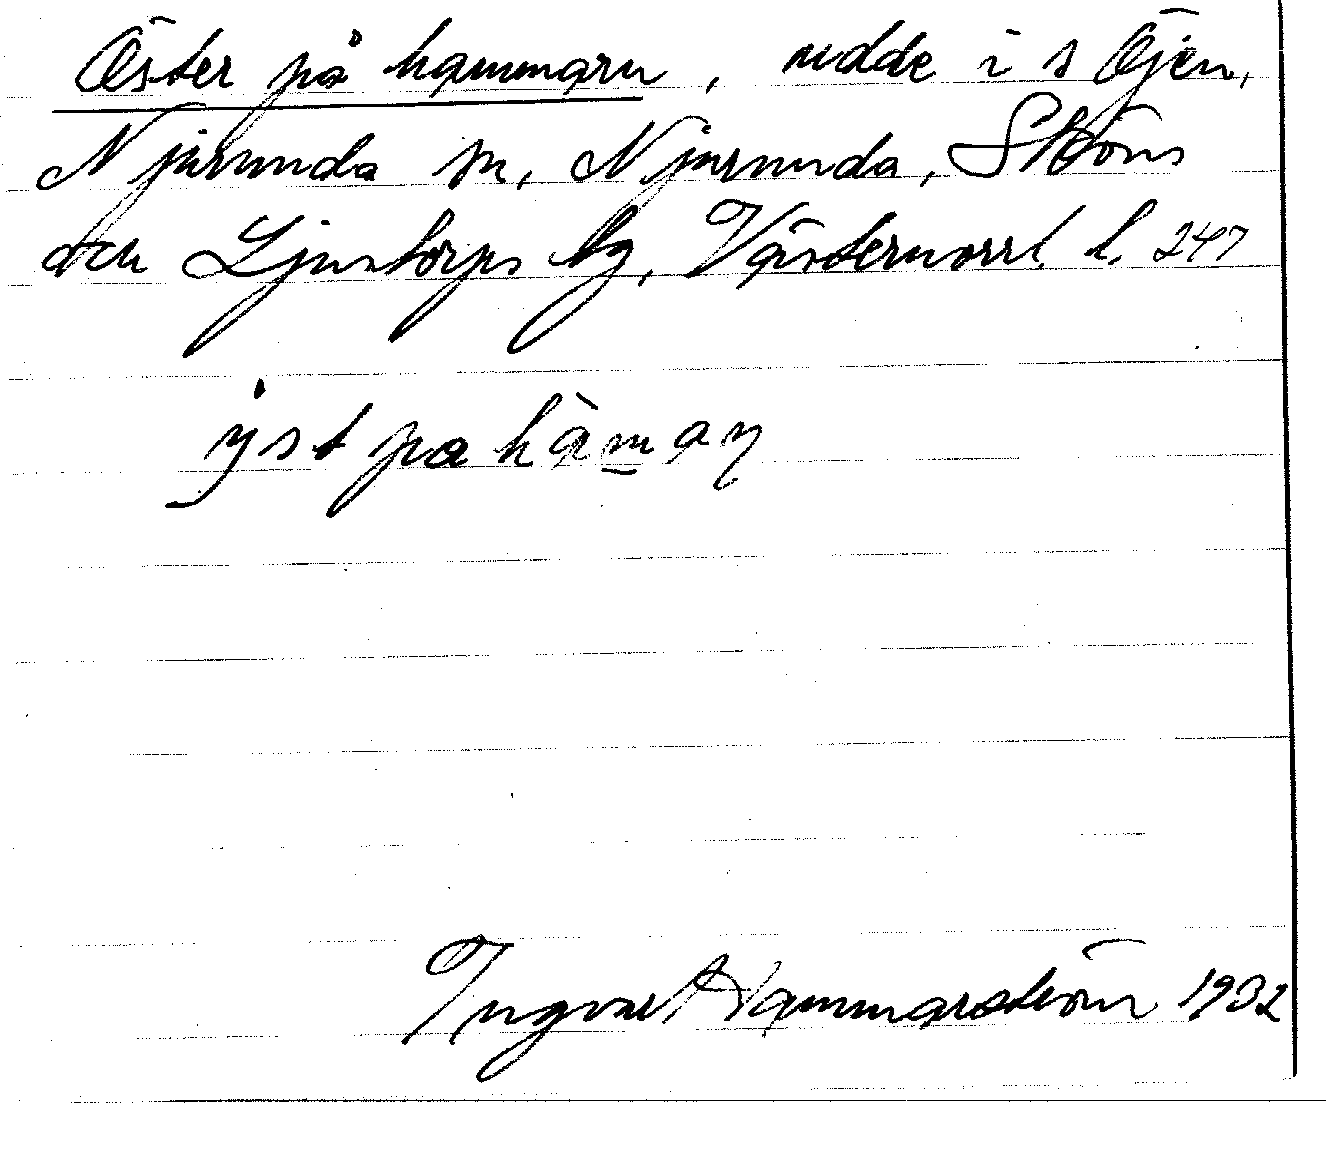 Öster på hammarn, udde i s Öjen,
Njurunda sn, Njurunda, Sköns
och Ljustorps tg, Västernorrl. l. 247
ÿst pa hämaṇ
Ingvar Hammarström 1932